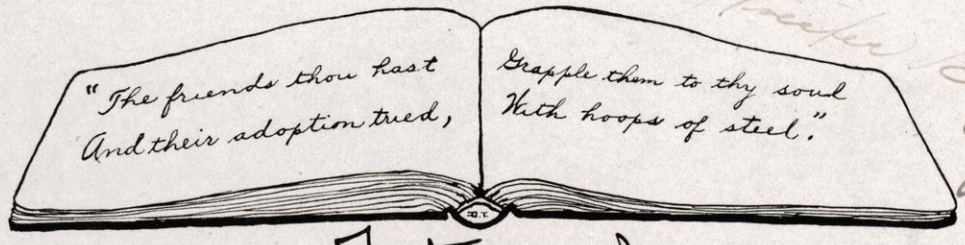 "The friends thou hast
And their adoption tried,
Grapple them to thy soul
With hoops of steel."